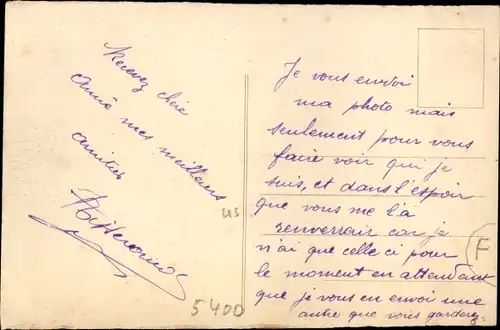 Recevez chère
amie mes meilleurs
amitiés
us
5400
Je vous envoi
ma photo mais
seulement pour vous
faire voir qui je
suis, et dans l'espoir
que vous me l'a
renverrair car je
n'ai que celle ci pour
le moment en attendant
que je vous en envoi une
autre que vous garderez
F